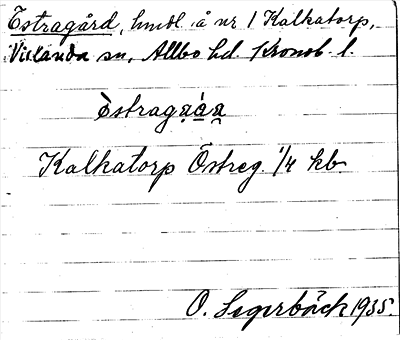 Östragård, hmdl å nr 1 Kalkatorp,
Vislanda sn, Allbo hd. Kronob. l.
Kalkatorp Östreg. 1/4 kb.
O. Segerbäck 1935.